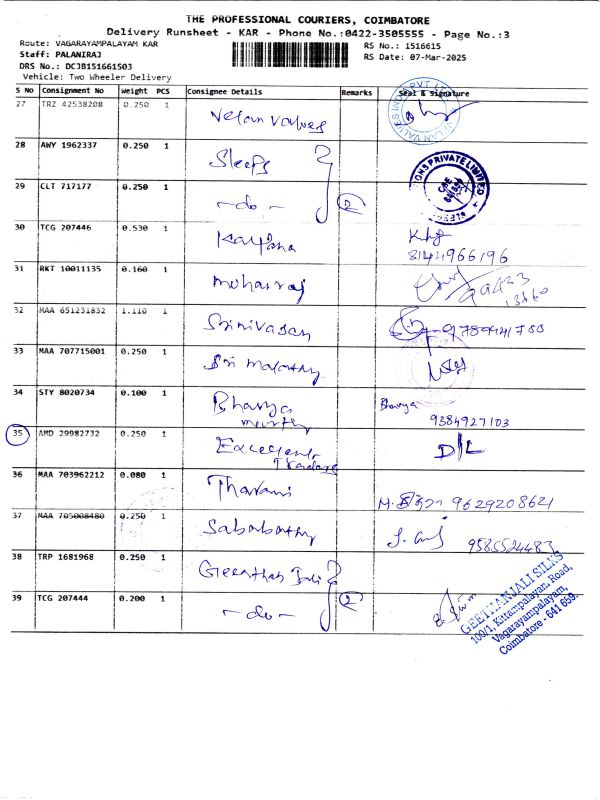 THE PROFESSIONAL COURIERS, COIMBATORE
Delivery Runsheet - KAR - Phone No.:0422-3505555 - Page No.:3
Route: VAGARAYAMPALAYAM KAR
RS No.: 1516615
Staff: PALANIRAJ
RS Date: 07-Mar-2025
DRS No.: DCJB151661503
Vehicle: Two Wheeler Delivery
S No Consignment No Weight PCS Consignee Details Remarks Seal & Signature
27 TRZ 42538208 0.250 1 Velan Valves
28 AWY 1962337 0.250 1 Sleeps
29 CLT 717177 0.250 1 -do- 2
30 TCG 207446 0.530 1 Kalpana
8144966196
31 RKT 10011135 0.160 1 Mohanraj
32 MAA 651231832 1.110 1 Srinivasan 9789441700
33 MAA 707715001 0.250 1 Sri Malathy
34 STY 8020734 0.100 1 Bhavya Bhavya
9384927103
35 AMD 29982732 0.250 1 Excellent D/L
Traders
36 MAA 703962212 0.080 1 Tharani 9629208621
37 MAA 705008480 0.250 1 Sababathy 9585524483
38 TRP 1681968 0.250 1
39 TCG 207444 0.200 1 -do- 2
GEETHANJALI SILKS
100/1, Kittampalayan Road,
Vagarayampalayam,
Coimbatore - 641 659.